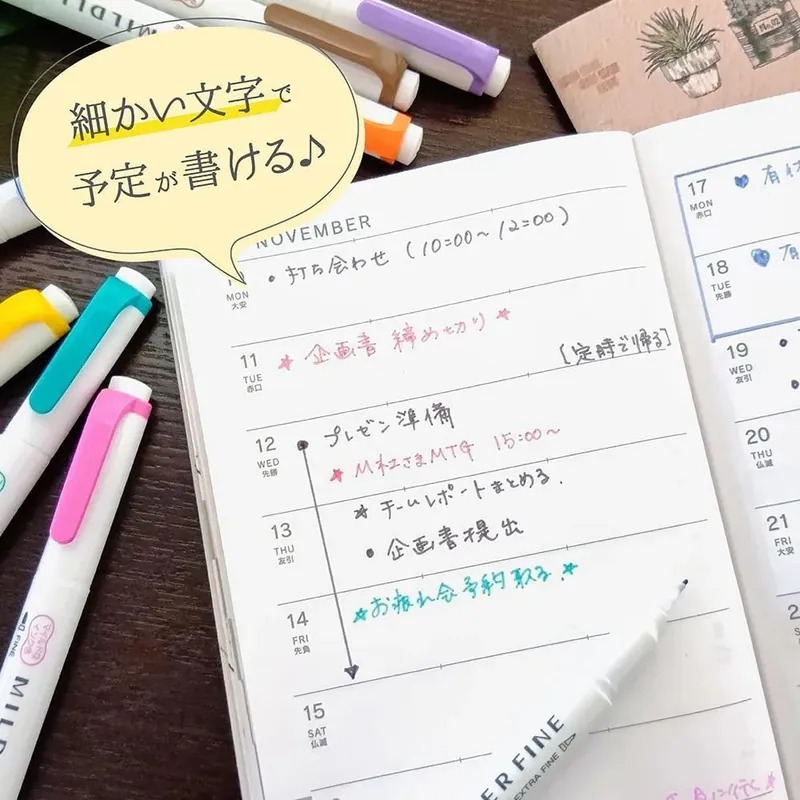 細かい文字で
予定が書ける♪
NOVEMBER
MON
大安
・打ち合わせ (10:00~12:00)
11
TUE
赤口
*企画書 締め切り*
[定時で帰る]
12
WED
先勝
プレゼン準備
*M社さまMTG 15:00~
13
THU
友引
*チームレポートまとめる.
・企画書提出
14
FRI
先負
*お疲れ会予約取る.*
15
SAT
仏滅
17
MON
赤口
18
TUE
先勝
19
WED
友引
20
THU
仏滅
21
FRI
大安
MILD
FINE
ERFINE
EXTRA FINE